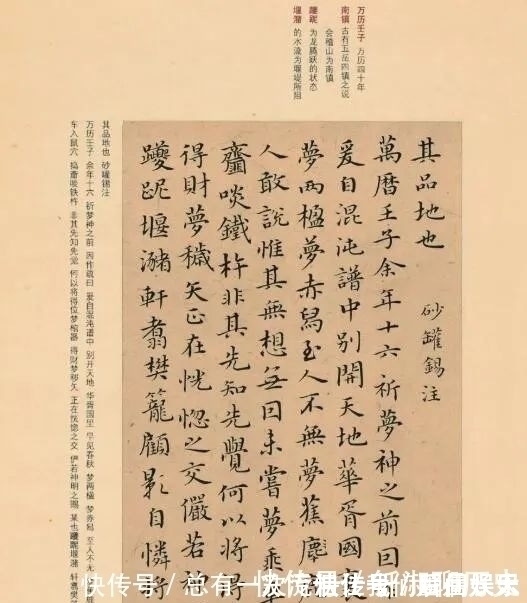 万历壬子 万历四十年
南镇 古有五岳四镇之说
会稽山为南镇
躨跜 为龙腾跃的状态
堰潴 的水流为堰堤所阻
其品地也 砂罐錫注
萬曆壬子余年十六祈夢神之前因
爰自混沌譜中别開天地華胥國
夢兩楹夢赤舄至人不無夢蕉鹿
人敢說惟其無想無因未嘗夢乘
齏啖鐵杵非其先知先覺何以將得
得財夢穢矢正在恍惚之交儼若
躨跜堰瀦軒翥樊籠顧影自憐將
其品地也 砂罐锡注
万历壬子 余年十六 祈梦神之前 因作疏曰 爰自混沌谱中 别开天地 华胥国里 早见春秋 梦两楹 梦赤舄 至人不无
车入鼠穴 捣齑啖铁杵 非其先知先觉 何以将得位梦棺器 得财梦秽矢 正在恍惚之交 俨若神明之赐 某也躨跜堰潴 轩翥樊
快传号 / 总有一次